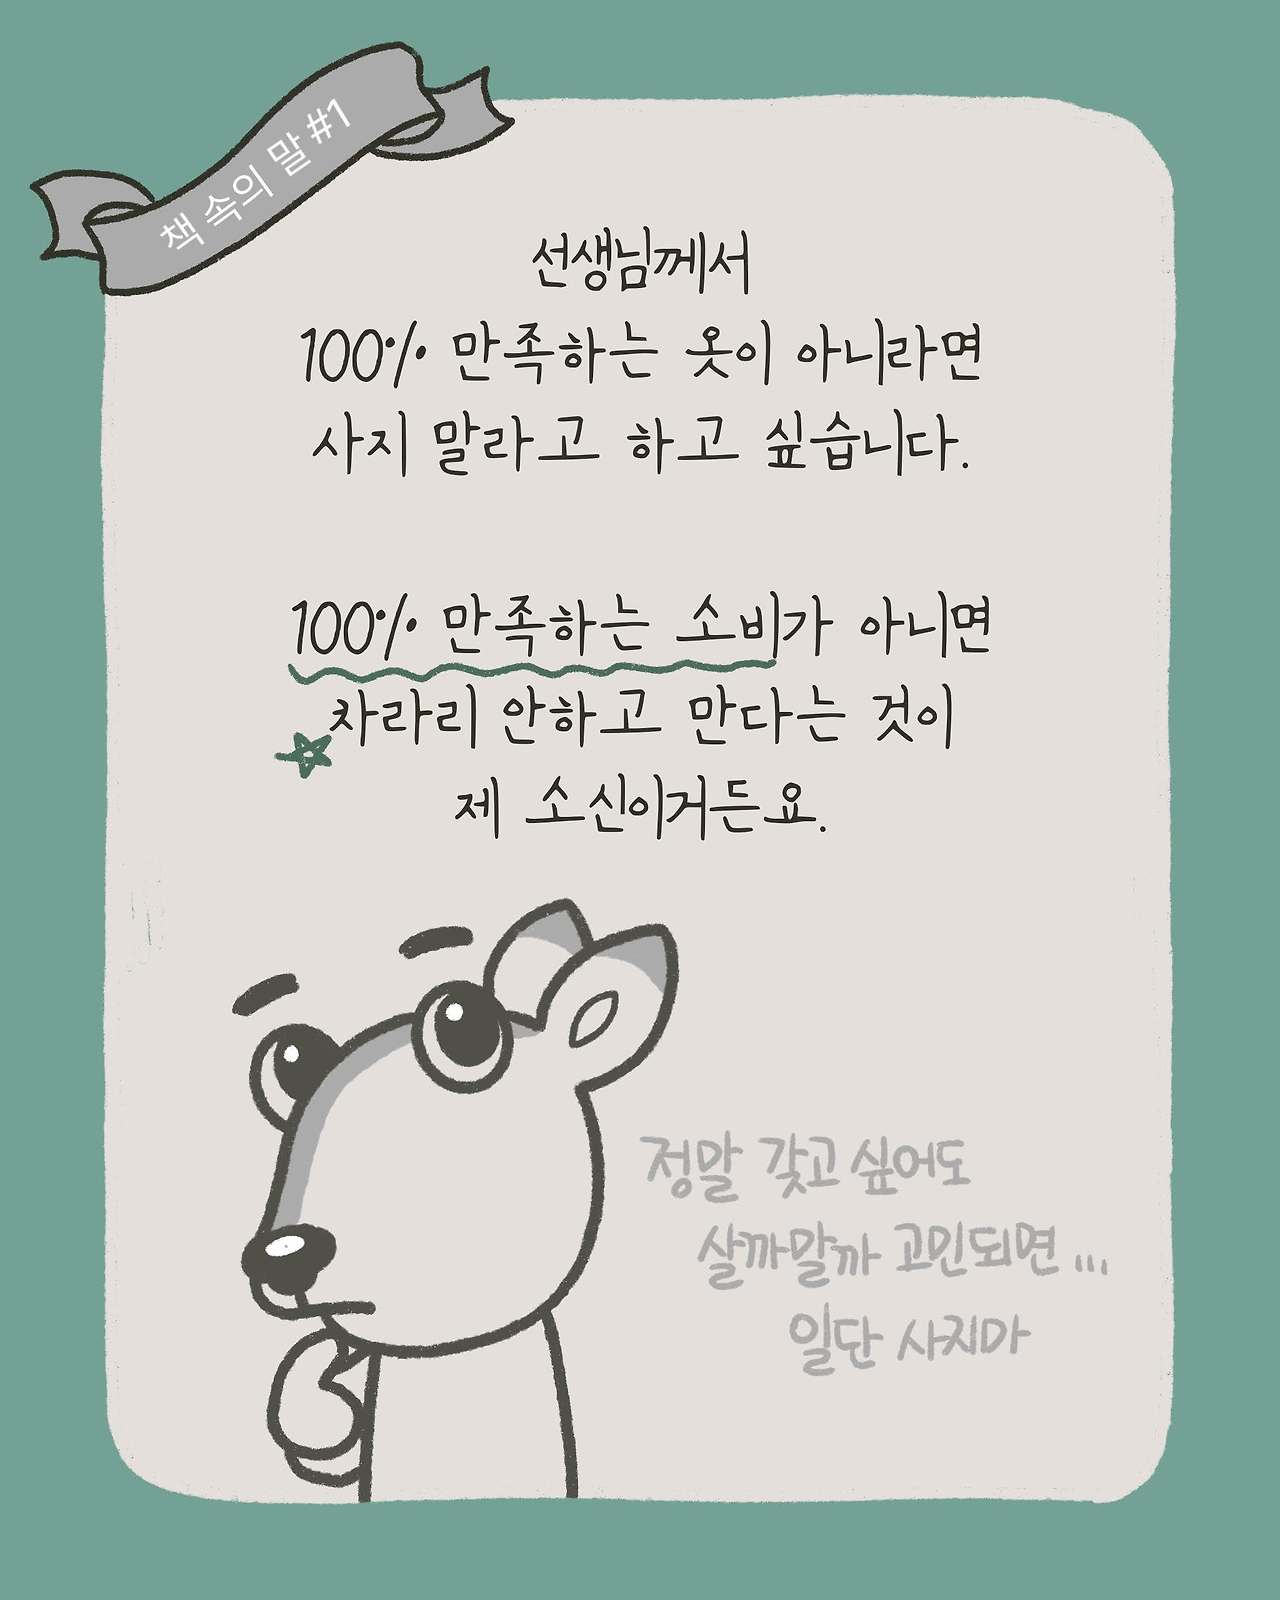 책 속의 말 #1
선생님께서
100% 만족하는 옷이 아니라면
사지 말라고 하고 싶습니다.
100% 만족하는 소비가 아니면
차라리 안하고 만다는 것이
제 소신이거든요.
정말 갖고 싶어도
살까말까 고민되면...
일단 사지마